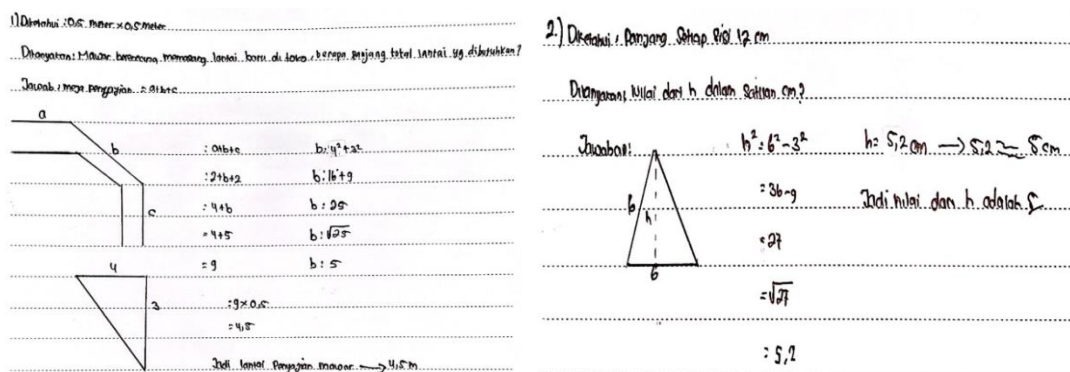 1) Diketahui : 0,5 meter × 0,5 meter
Ditanyakan : Mawar berencana memasang lantai baru di toko, berapa panjang total lantai yg dibutuhkan?
Jawab : meja penyajian = a+b+c
a
b
c
: a+b+c
: 2+b+2
: 4+b
= 4+5
= 9
b : 4²+3²
b : 16+9
b : 25
b : √25
b : 5
4
3
: 9×0,5
= 4,5
Jadi lantai Penyajian mawar → 4,5 m
2.) Diketahui : Panjang Setiap sisi 12 cm
Ditanyakan : Nilai dari h dalam satuan cm?
Jawaban :
6
h
6
h² : 6² - 3²
= 36-9
= 27
= √27
: 5,2
h = 5,2 cm → 5,2 ≃ 5 cm
Jadi nilai dari h adalah 5